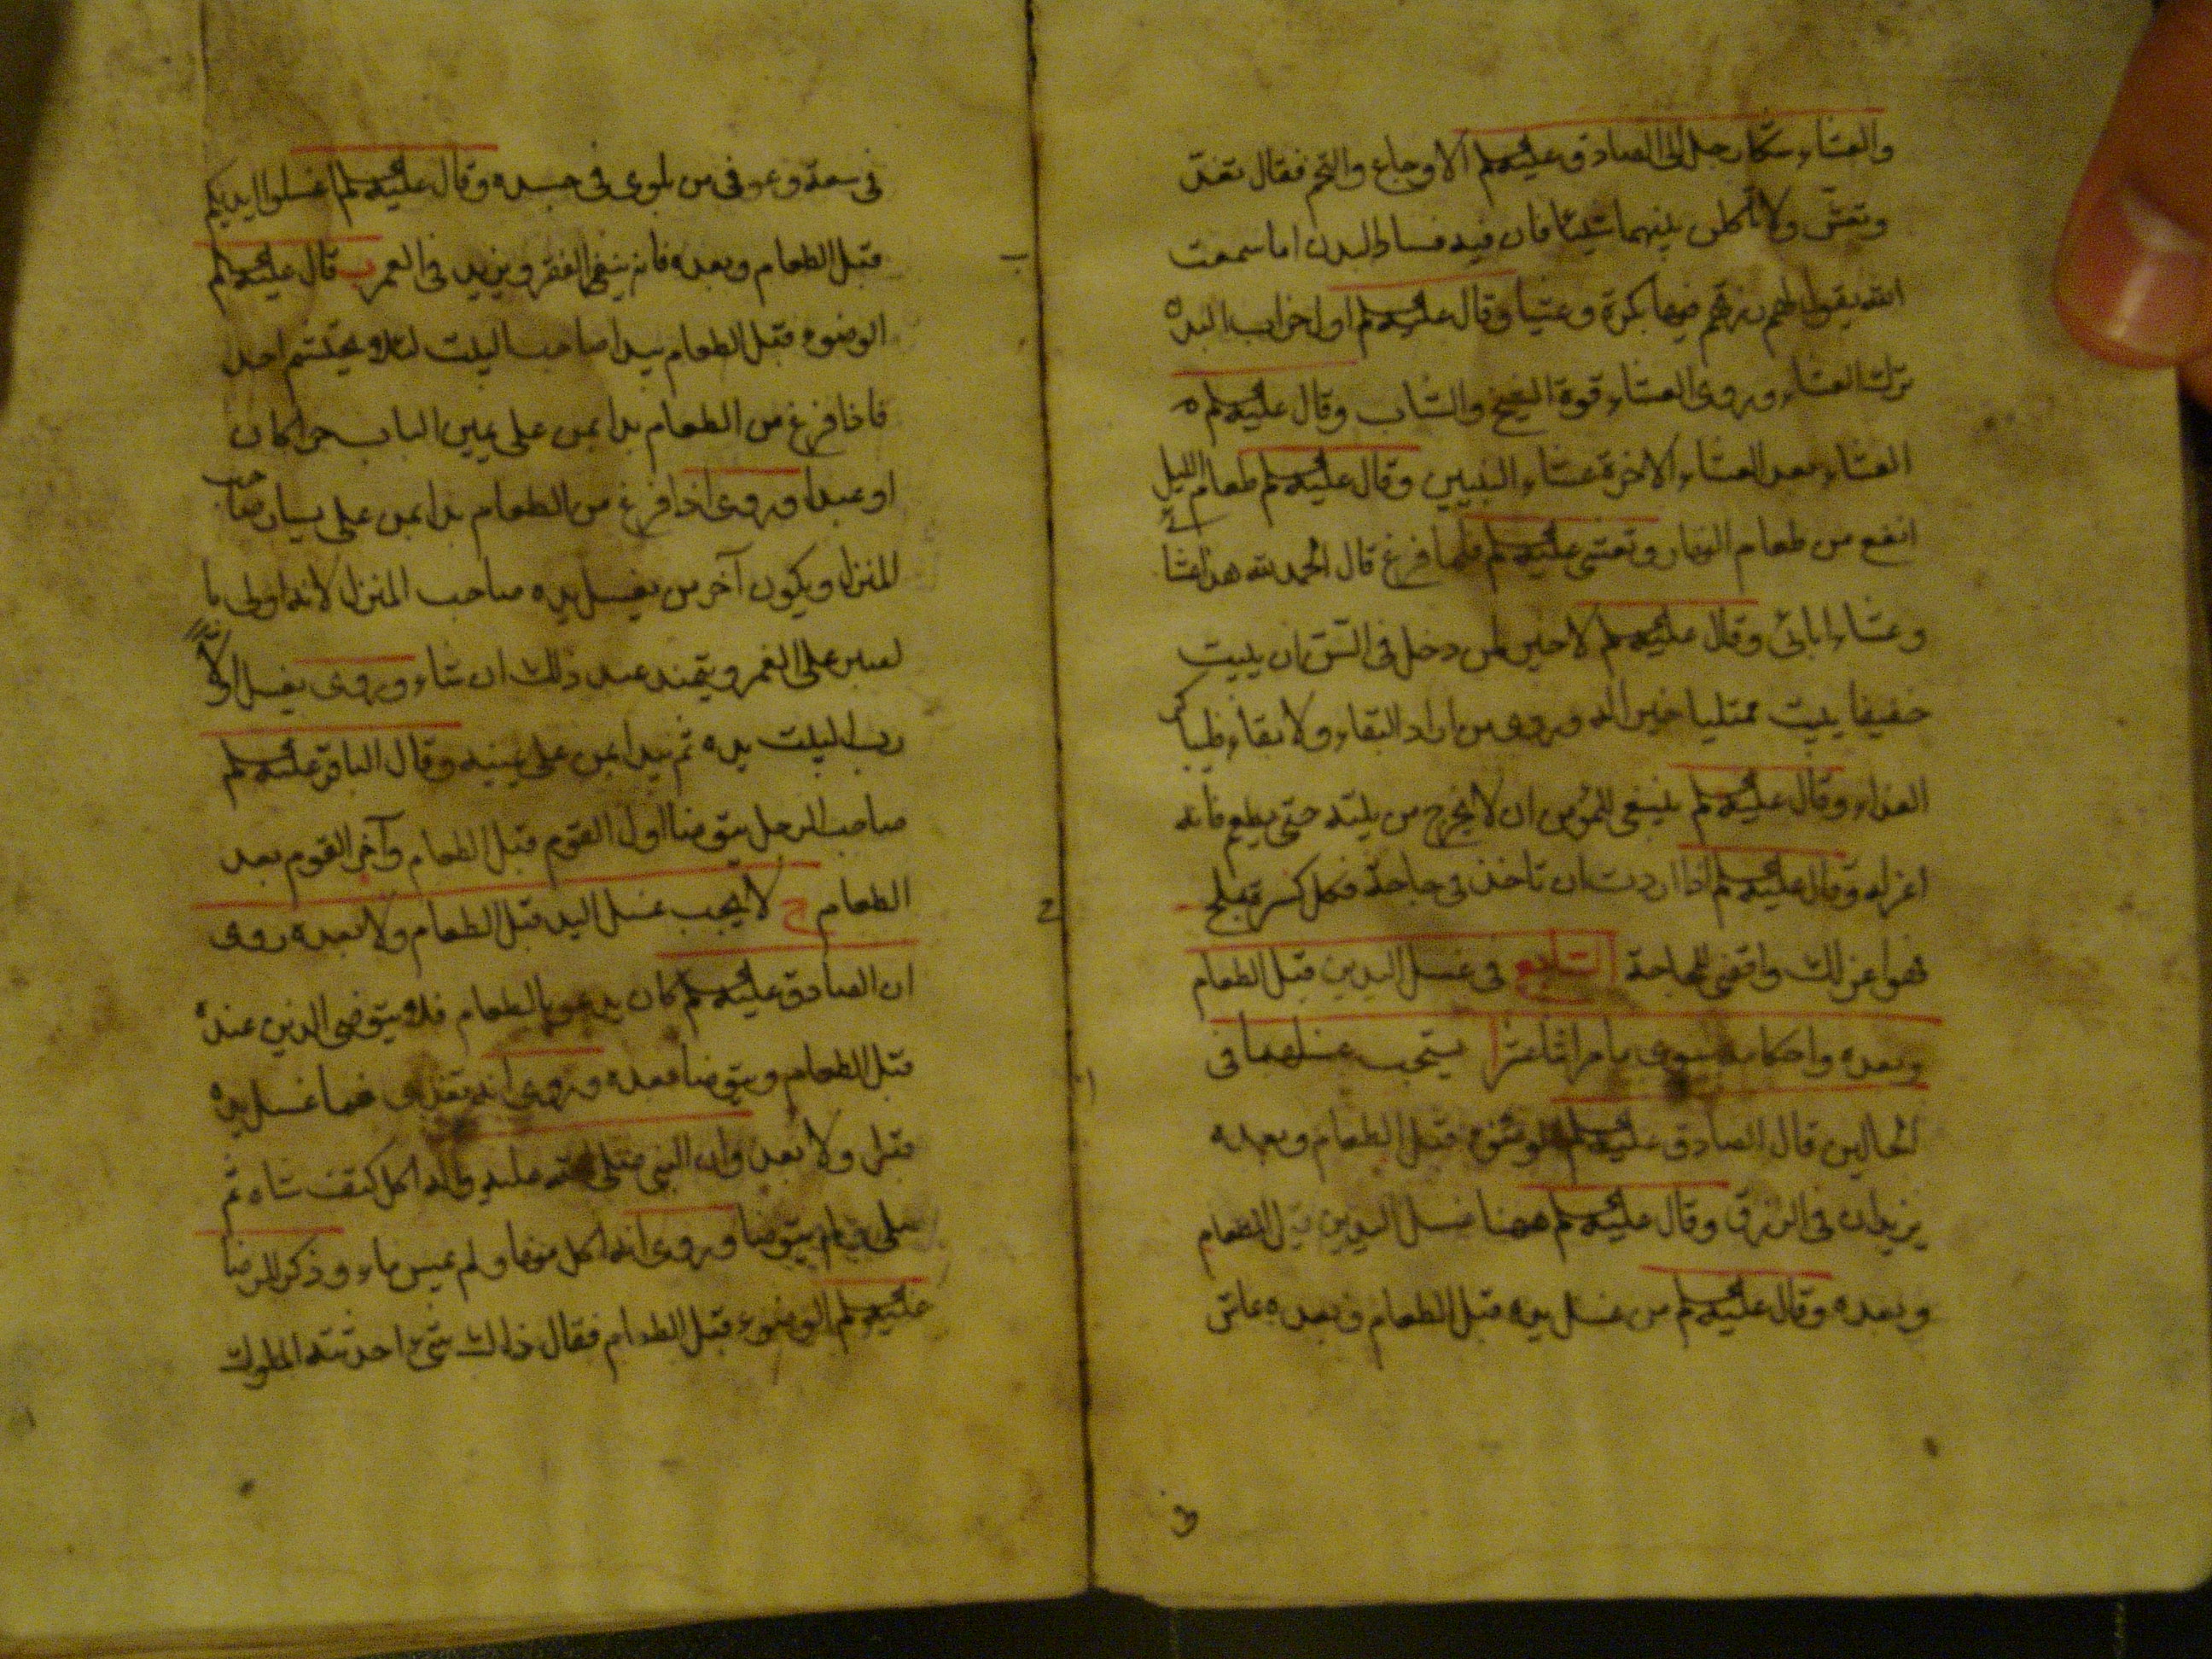 والعشاء شكا رجل الى الصادق عليه‌السلم الاوجاع والتخم فقال تغدّ
وتعشّ ولا تأكلن بينهما شيئا فان فيه فساد البدن اما سمعت
الله يقول لهم رزقهم فيها بكرة وعشيا وقال عليه‌السلم اول خراب البدن
ترك العشاء وروى العشاء قوة الشيخ والشاب وقال عليه‌السلم
العشاء بعد العشاء الاخرة عشاء النبيين وقال عليه‌السلم طعام الليل
انفع من طعام النهار وتعشى عليه‌السلم فلما فرغ قال الحمد لله هذا عشائى
وعشاء ابائى وقال عليه‌السلم لا خير لمن دخل فى السّن ان يبيت
خفيفا يبيت ممتليا خير له وروى من اراد البقاء ولا بقاء فليباكر
الغداء وقال عليه‌السلم ينبغى للمؤمن ان لا يخرج من بيته حتى يطعم فانه
اعز له وقال عليه‌السلم اذا اردت ان تاخذ فى حاجة فكل كسرة بملح
فهو اعز لك واقضى للحاجة التاسع فى غسل اليدين قبل الطعام
وبعده واحكامه سوى ما مر اثنا عشر ا يستحب غسلهما فى
الحالين قال الصادق عليه‌السلم الوضوء قبل الطعام وبعده
يزيدان فى الرزق وقال عليه‌السلم ههنا غسل اليدين قبل الطعام
وبعده وقال عليه‌السلم من غسل يده قبل الطعام وبعده عاش
فى سعة وعوفى من بلوى فى جسده وقال عليه‌السلم اغسلوا ايديكم
قبل الطعام وبعده فانه ينفى الفقر ويزيد فى العمر ب قال عليه‌السلم
الوضوء قبل الطعام يبدا صاحب البيت لئلا يحتشم احد
فاذا فرغ من الطعام بدا بمن على يمين الباب حرا كان
او عبدا وروى اذا فرغ من الطعام بدا بمن على يسار صاحب
المنزل ويكون آخر من يغسل يده صاحب المنزل لانه اولى با
لصبر على الغمر ويتمندل عند ذلك ان شاء وروى يغسل اولا
رب البيت يده ثم يبدا بمن على يمينه وقال الباقر عليه‌السلم
صاحب الرحل يتوضا اول القوم قبل الطعام وآخر القوم بعد
الطعام ج لا يجب غسل اليد قبل الطعام ولا بعده روى
ان الصادق عليه‌السلم كان يدعو بالطعام فلا يتوضى الذين عنده
قبل الطعام ويتوضا بعده وروى انه تغدى فما غسل يده
قبل ولا بعد وان النبى صلى الله عليه واله اكل كتف شاه ثم
صلى ولم يتوضا وروى انه اكل ولم يمس ماء وذكر الرضا
عليه‌السلم الوضوء قبل الطعام فقال ذلك شئ احدثته الملوك